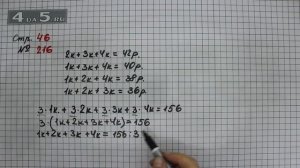 4DA5.RU
Стр. 46
№ 216
2к+3к+4к = 42р.
1к+3к+4к = 40р.
1к+2к+4к = 38р.
1к+2к+3к = 36р.
3·1к + 3·2к + 3·3к + 3·4к = 156
3·(1к+2к+3к+4к) = 156
1к+2к+3к+4к = 156:3